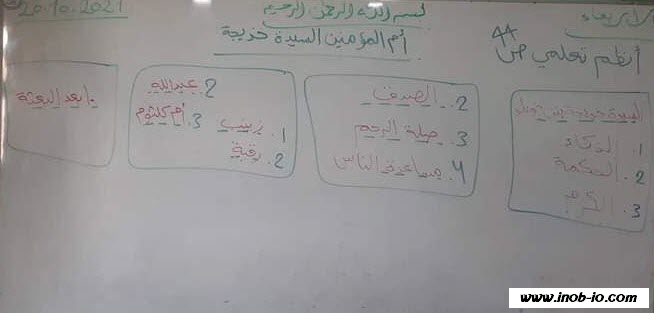 الأربعاء
بسم الله الرحمن الرحيم
20.10.2021
أم المؤمنين السيدة خديجة
أنظم تعلمي ص 44
السيدة خديجة بنت خويلد
1. الذكاء
2. الحكمة
3. الكرم
2. الصدق
3. صلة الرحم
4. مساعدة الناس
2. عبدالله
1. زينب 3. أم كلثوم
2. رقية
1. بعد البعثة
www.inob-io.com